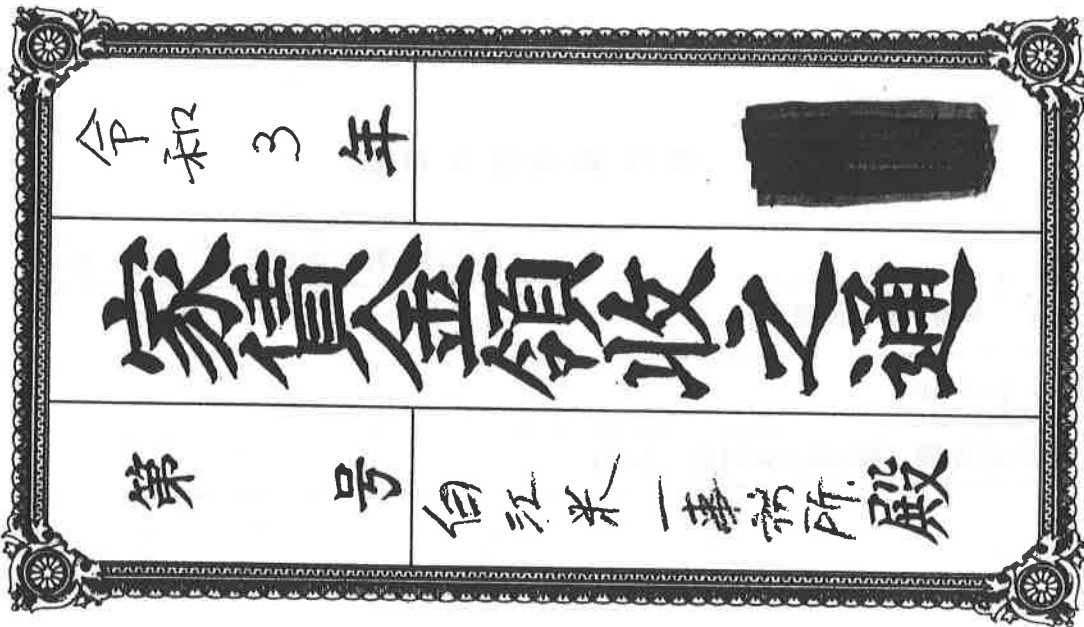 令和3年
家賃金領收之通
第 号
白江米一事務所 殿